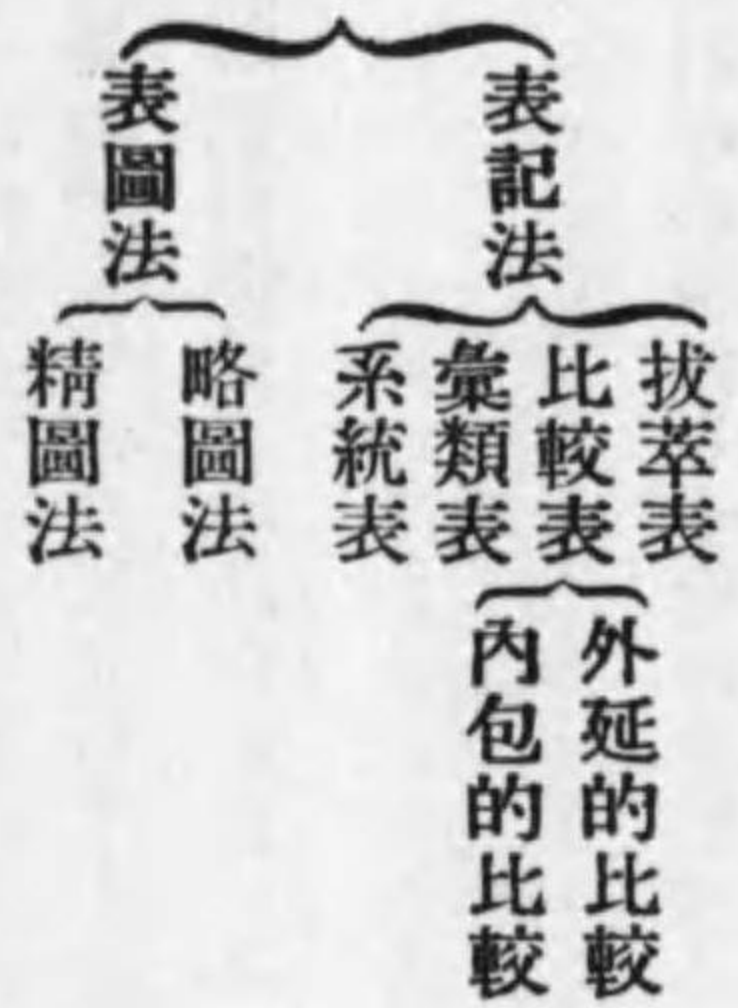 表記法
拔萃表
比較表
外延的比較
內包的比較
彙類表
系統表
表圖法
略圖法
精圖法